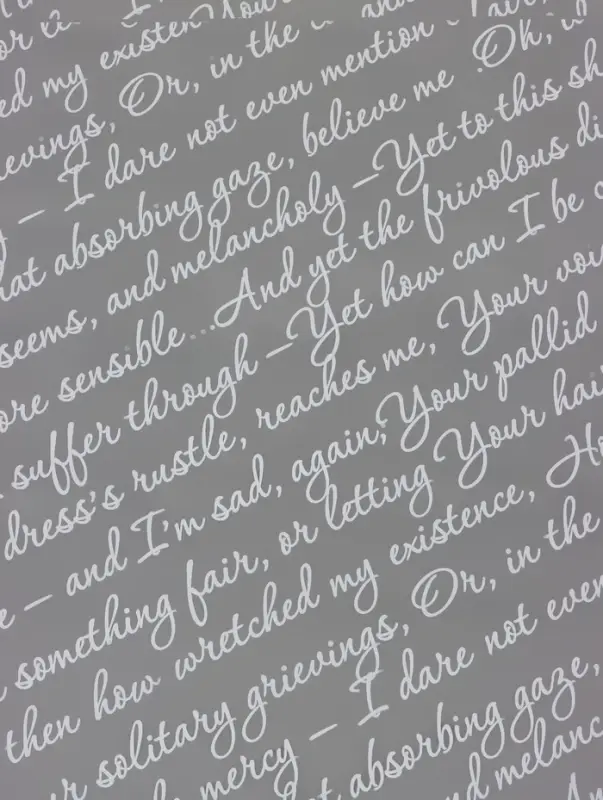 ed my existen Your
ievings, Or, in the
— I dare not even mention
hat absorbing gaze, believe me . Oh,
seems, and melancholy —Yet to this sh
ore sensible...And yet the frivolous di
suffer through —Yet how can I be c
dress's rustle, reaches me, Your voi
e — and I'm sad, again, Your pallid
something fair, or letting Your hai
then how wretched my existence, Ho
ur solitary grievings, Or, in the
mercy — I dare not even
at absorbing gaze,
nd melanc
An